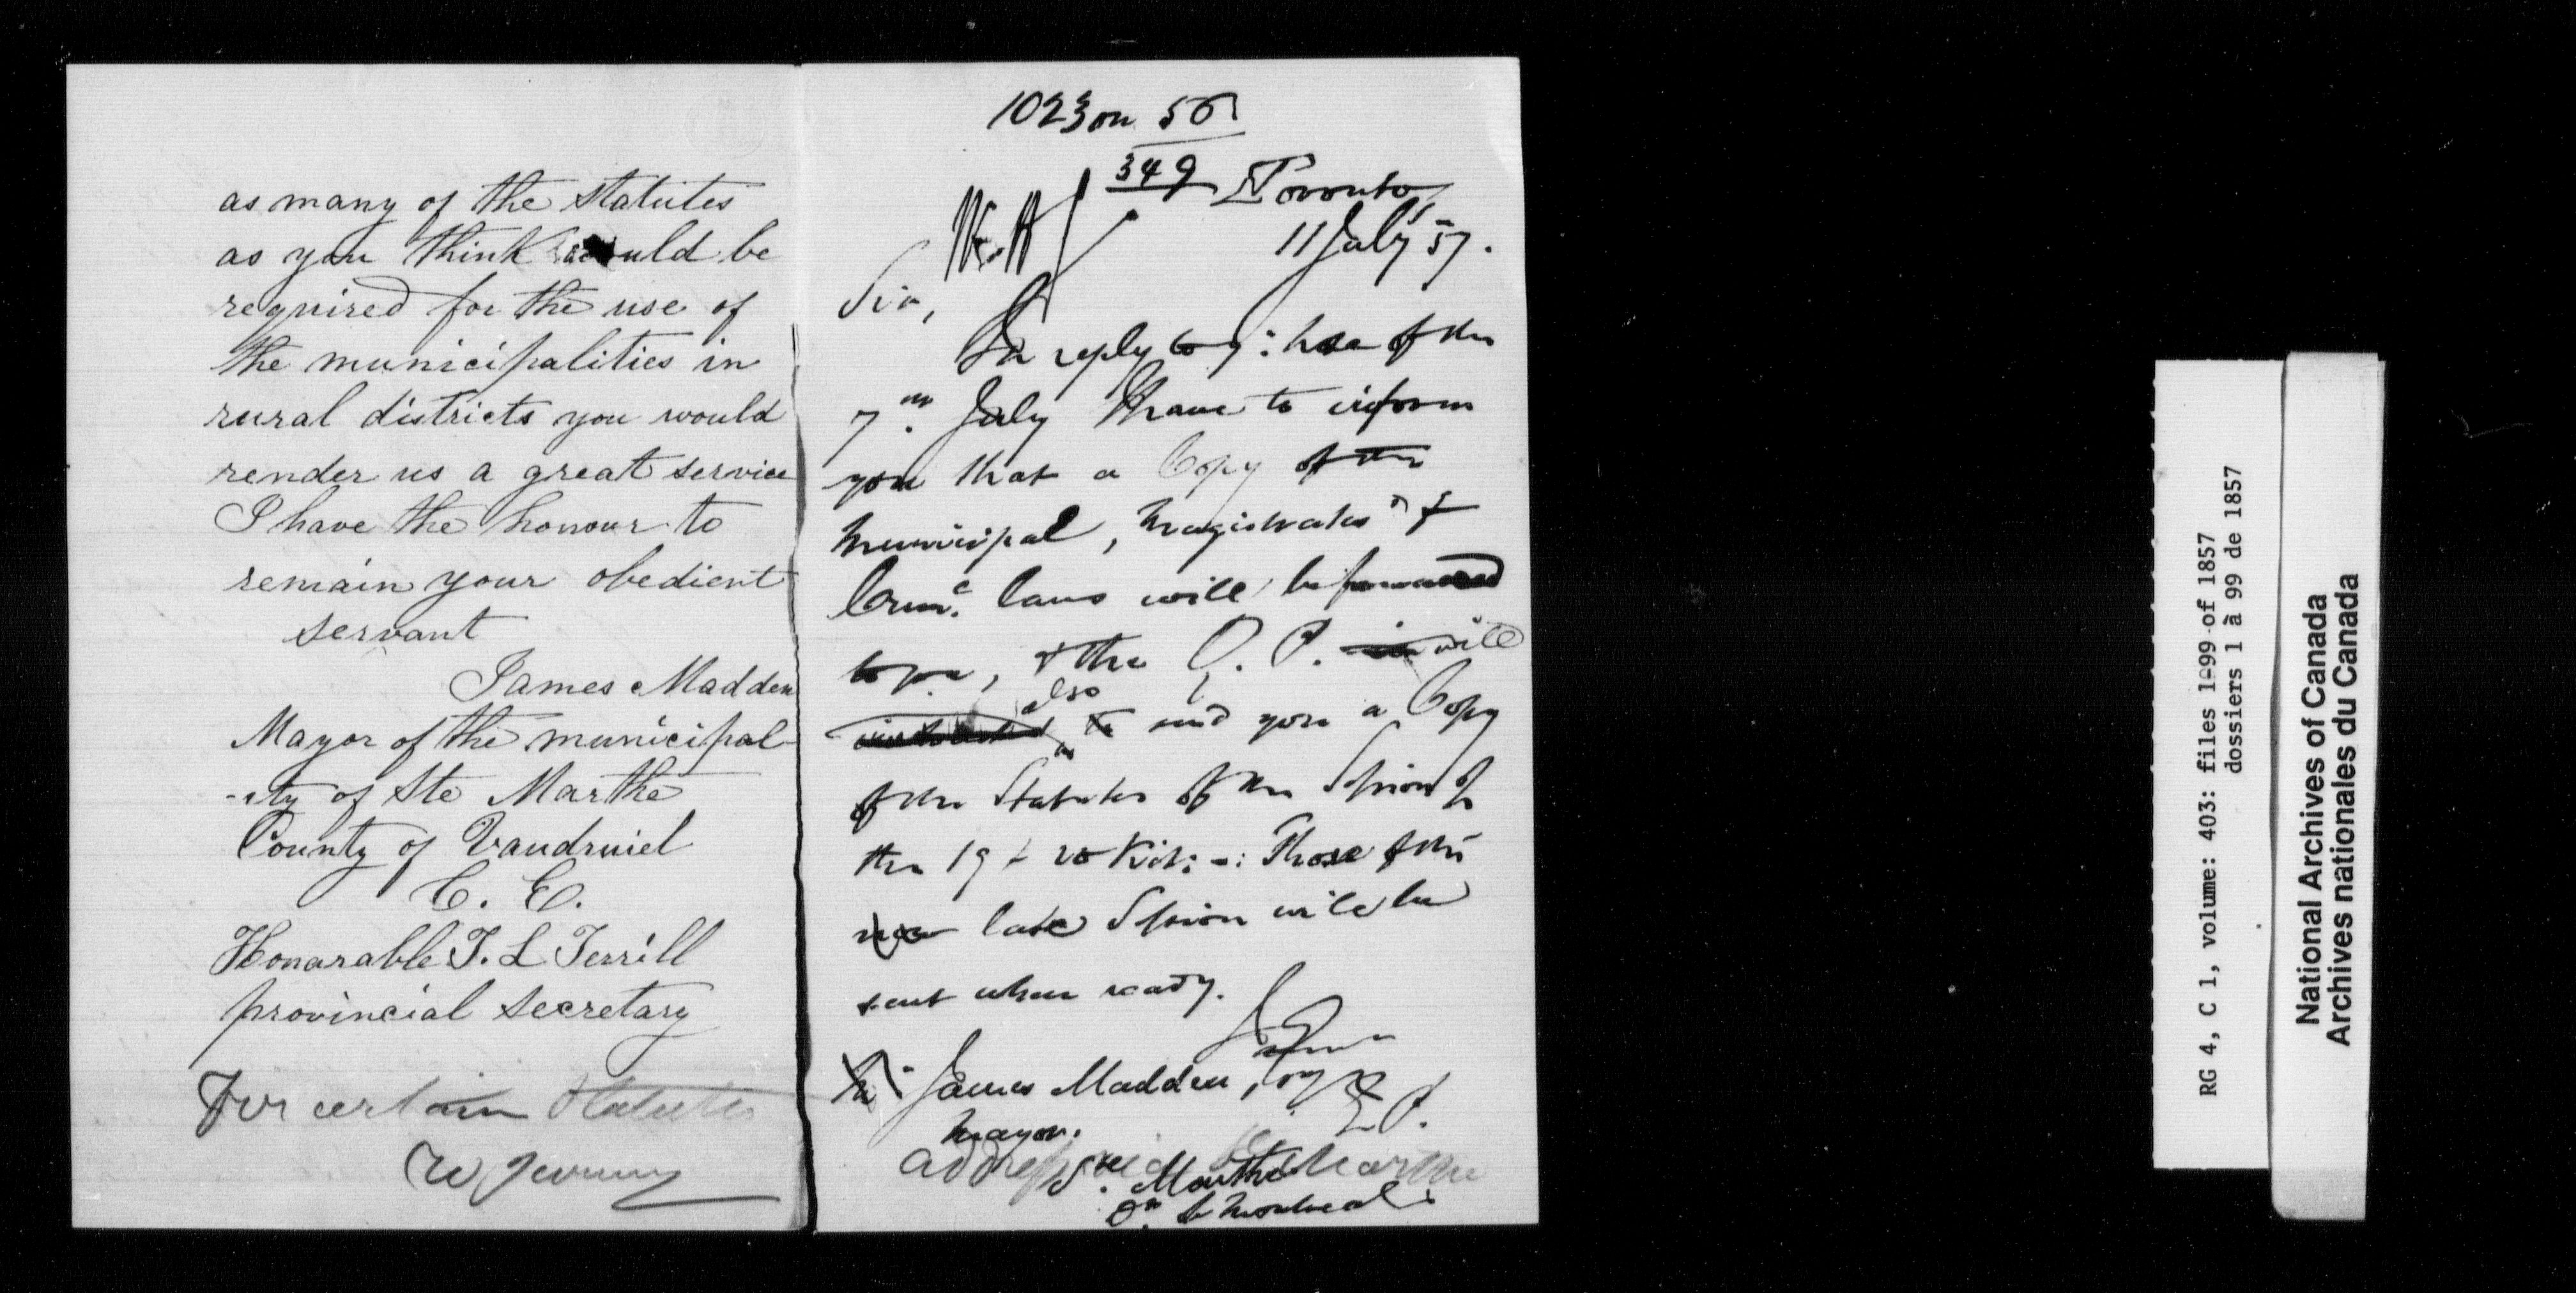 as many of the statutes
as you think would be
required for the use of
the municipalities in
rural districts you would
render us a great service
I have the honour to
remain your obedient
servant
James Madden
Mayor of the municipal-
-ity of Ste Marthe
County of Vaudruiel
C. E.
Honarable T. L Terrill
provincial secretary
For certain Statutes
1023 on 56
349
Toronto,
11 July 57.
Sir,
In reply to yr: note of the
7th July I have to inform
you that a Copy of the
Municipal, Magistrates &
Crim.l laws will be forwarded
to you, & the Q. P. will
also send you a Copy
of the Statutes of the Session of
the 19 & 20 Vict: -: Those of the
late Session will be
sent when ready.
James Madden, Esq
Mayor.
Addressed Ste Marthe
Ste Marthe
Montreal
RG 4, C 1, volume: 403: files 1-99 of 1857
dossiers 1 à 99 de 1857
National Archives of Canada
Archives nationales du Canada